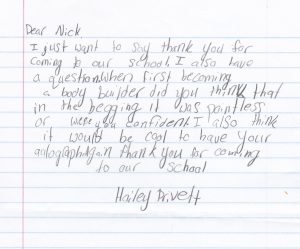 Dear Nick
I just want to say thank you for
coming to our school. I also have
a question. When first becoming
a body builder did you think that
in the begging it was pointless
or were you confident I also think
it would be cool to have your
autograph again thank you for coming
to our school
Hailey Privett